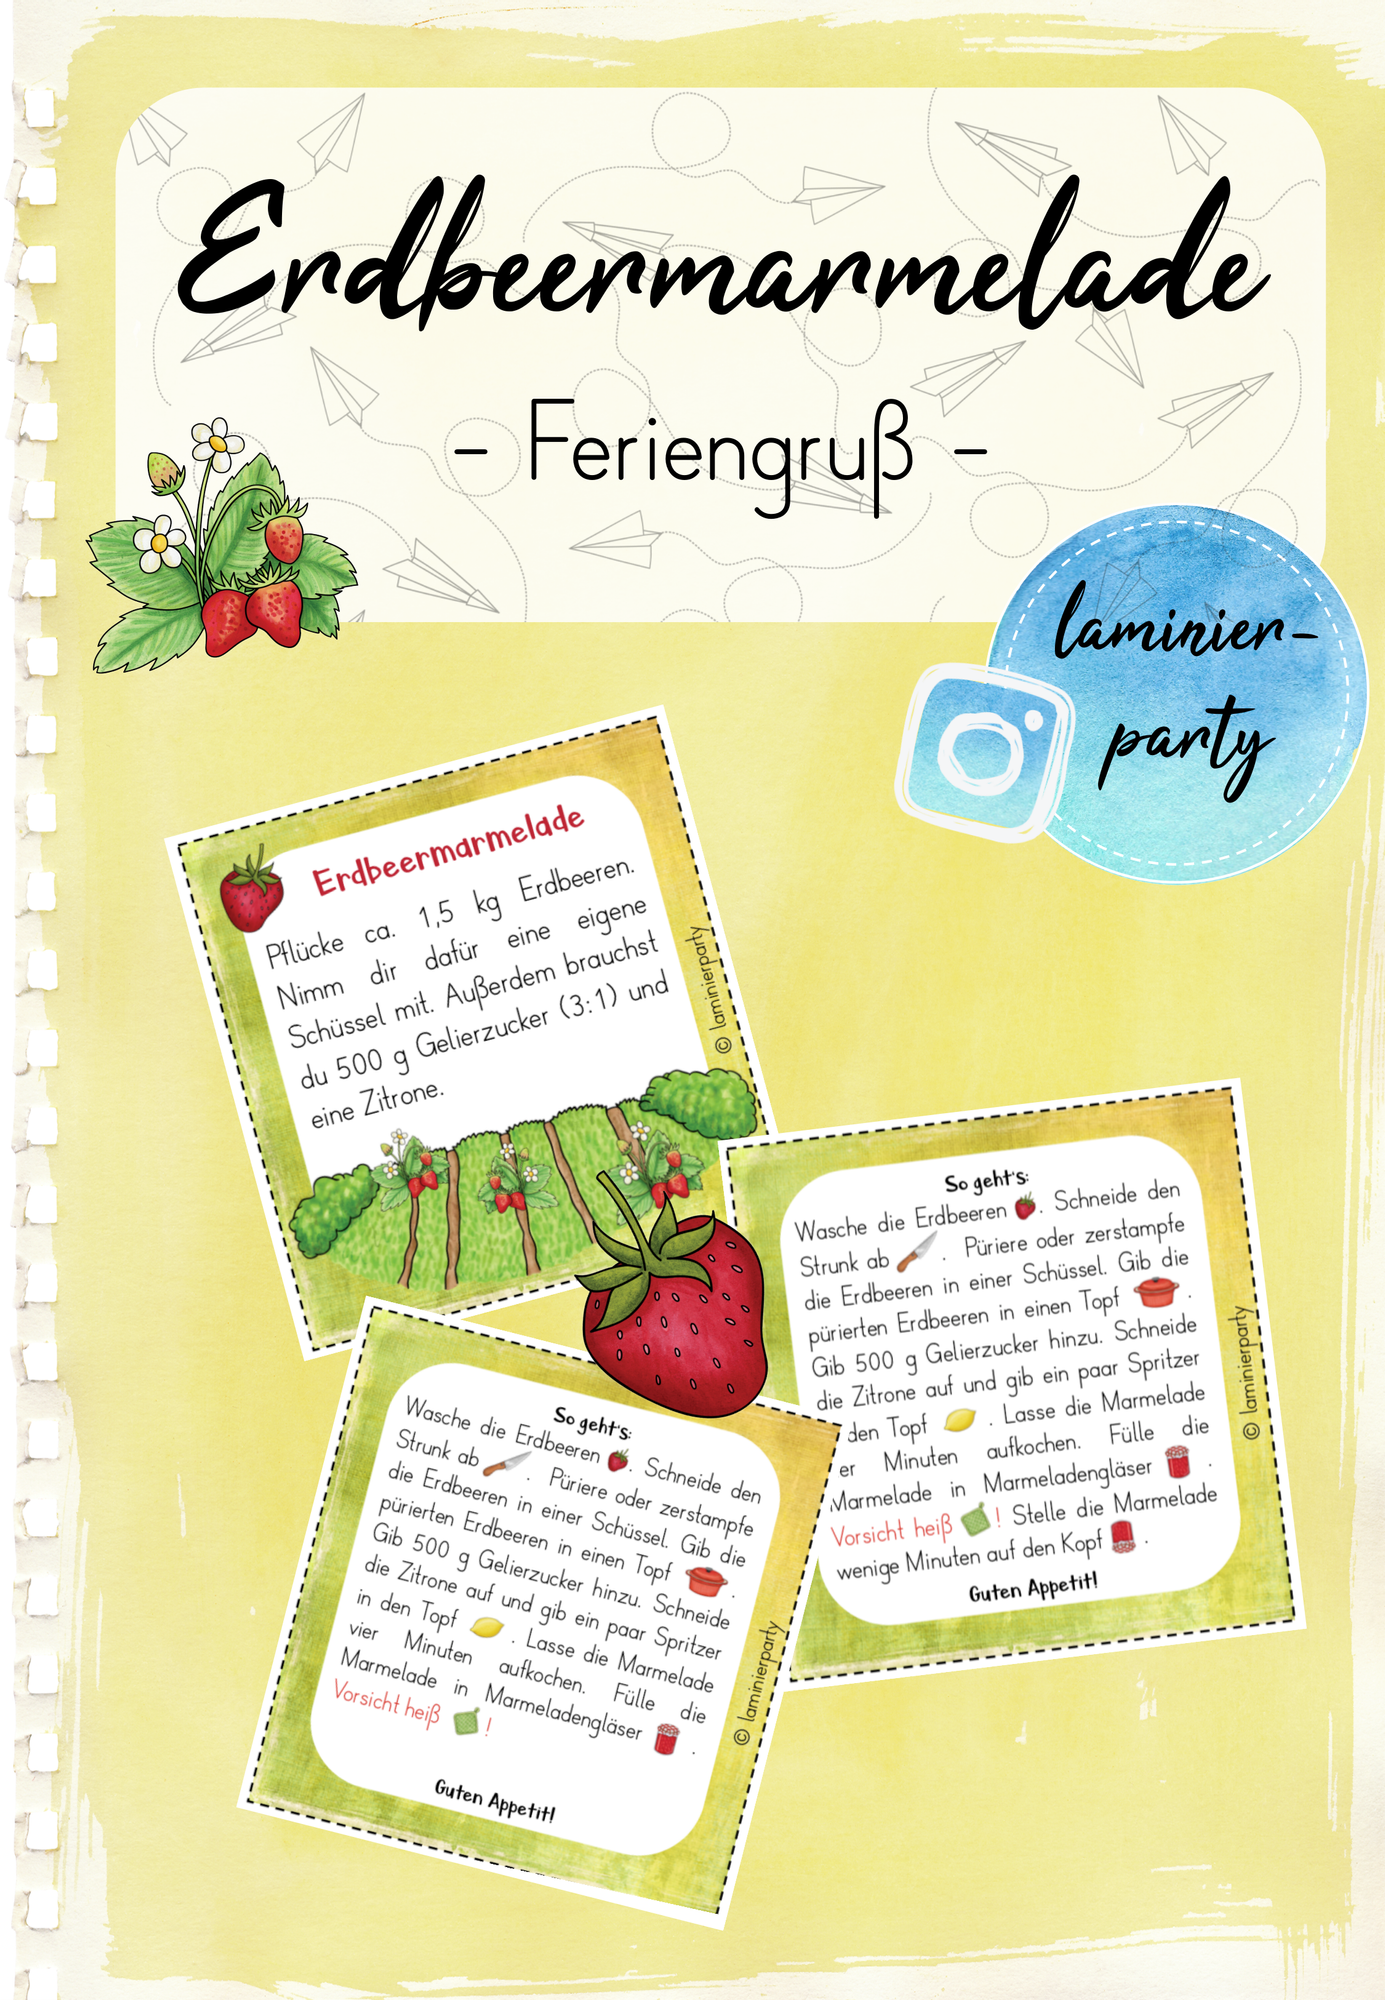 Erdbeermarmelade
- Feriengruß -
laminier-
party
Erdbeermarmelade
Pflücke ca. 1,5 kg Erdbeeren.
Nimm dir dafür eine eigene
Schüssel mit. Außerdem brauchst
du 500 g Gelierzucker (3:1) und
eine Zitrone.
© laminierparty
So geht's:
Wasche die Erdbeeren . Schneide den
Strunk ab . Püriere oder zerstampfe
die Erdbeeren in einer Schüssel. Gib die
pürierten Erdbeeren in einen Topf .
Gib 500 g Gelierzucker hinzu. Schneide
die Zitrone auf und gib ein paar Spritzer
den Topf . Lasse die Marmelade
er Minuten aufkochen. Fülle die
Marmelade in Marmeladengläser .
Vorsicht heiß ! Stelle die Marmelade
wenige Minuten auf den Kopf .
Guten Appetit!
© laminierparty
So geht's:
Wasche die Erdbeeren . Schneide den
Strunk ab . Püriere oder zerstampfe
die Erdbeeren in einer Schüssel. Gib die
pürierten Erdbeeren in einen Topf .
Gib 500 g Gelierzucker hinzu. Schneide
die Zitrone auf und gib ein paar Spritzer
in den Topf . Lasse die Marmelade
vier Minuten aufkochen. Fülle die
Marmelade in Marmeladengläser .
Vorsicht heiß !
Guten Appetit!
© laminierparty